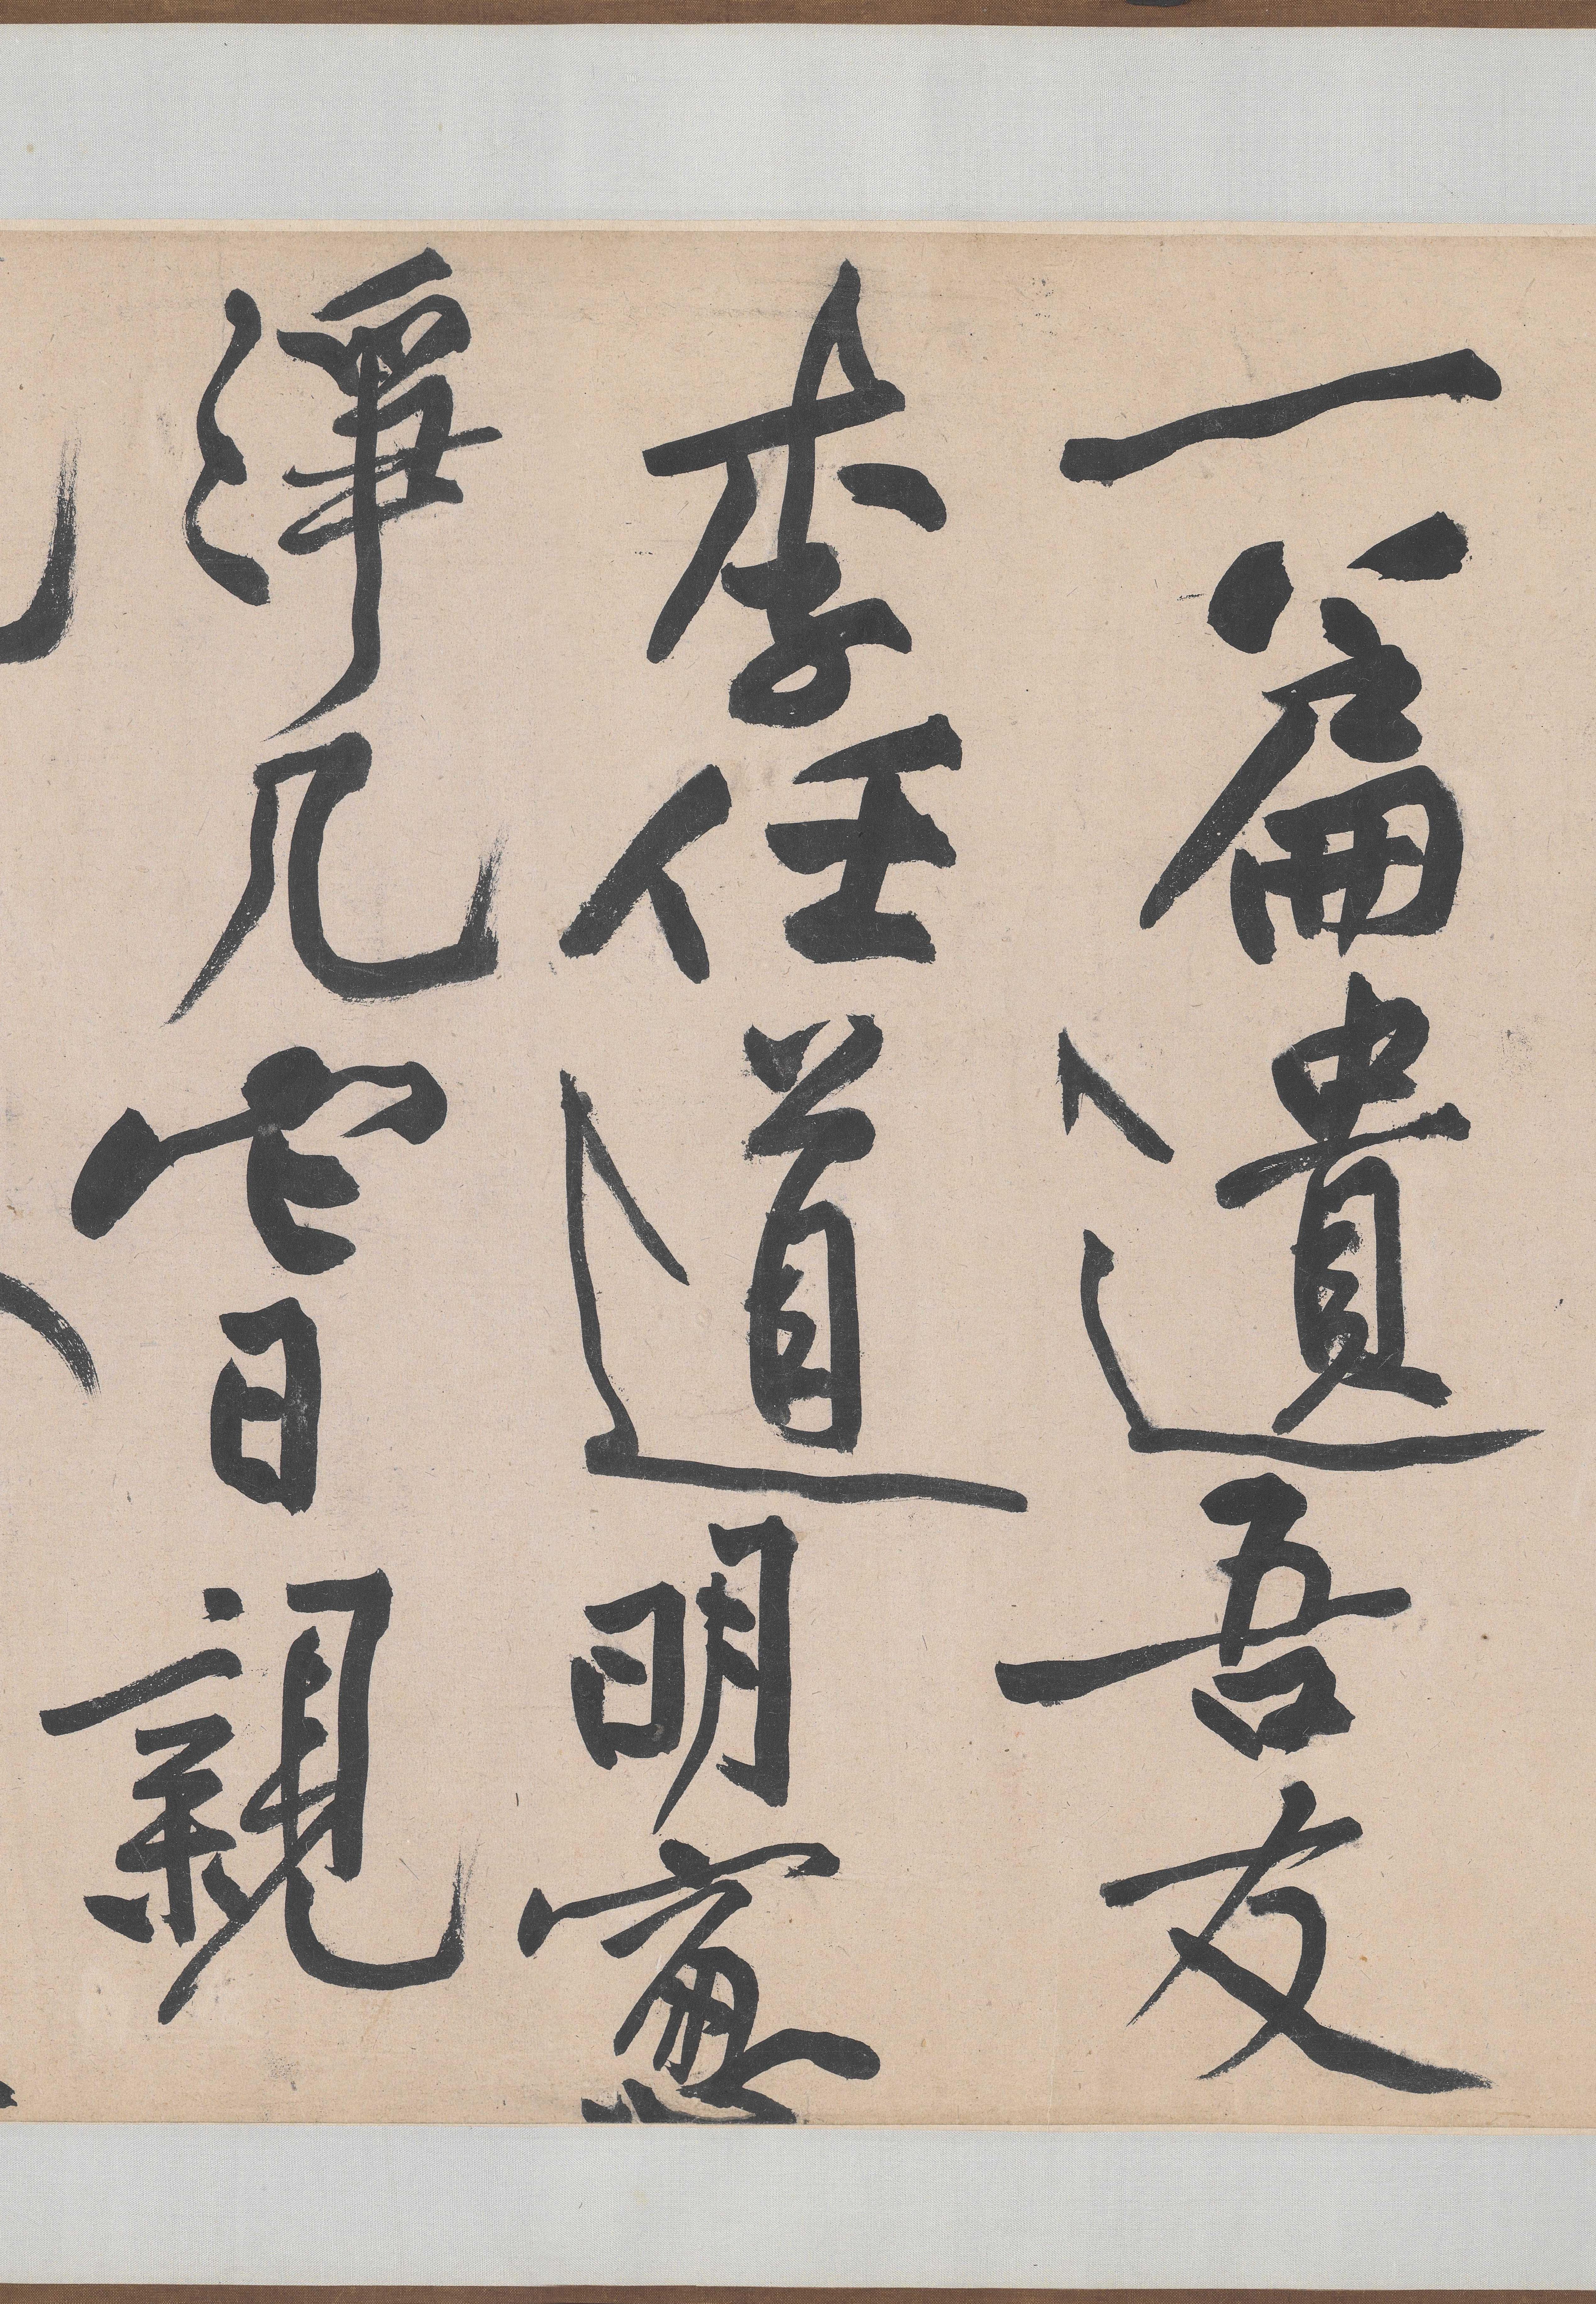 一篇遺吾友
李任道明窓
淨几它日親